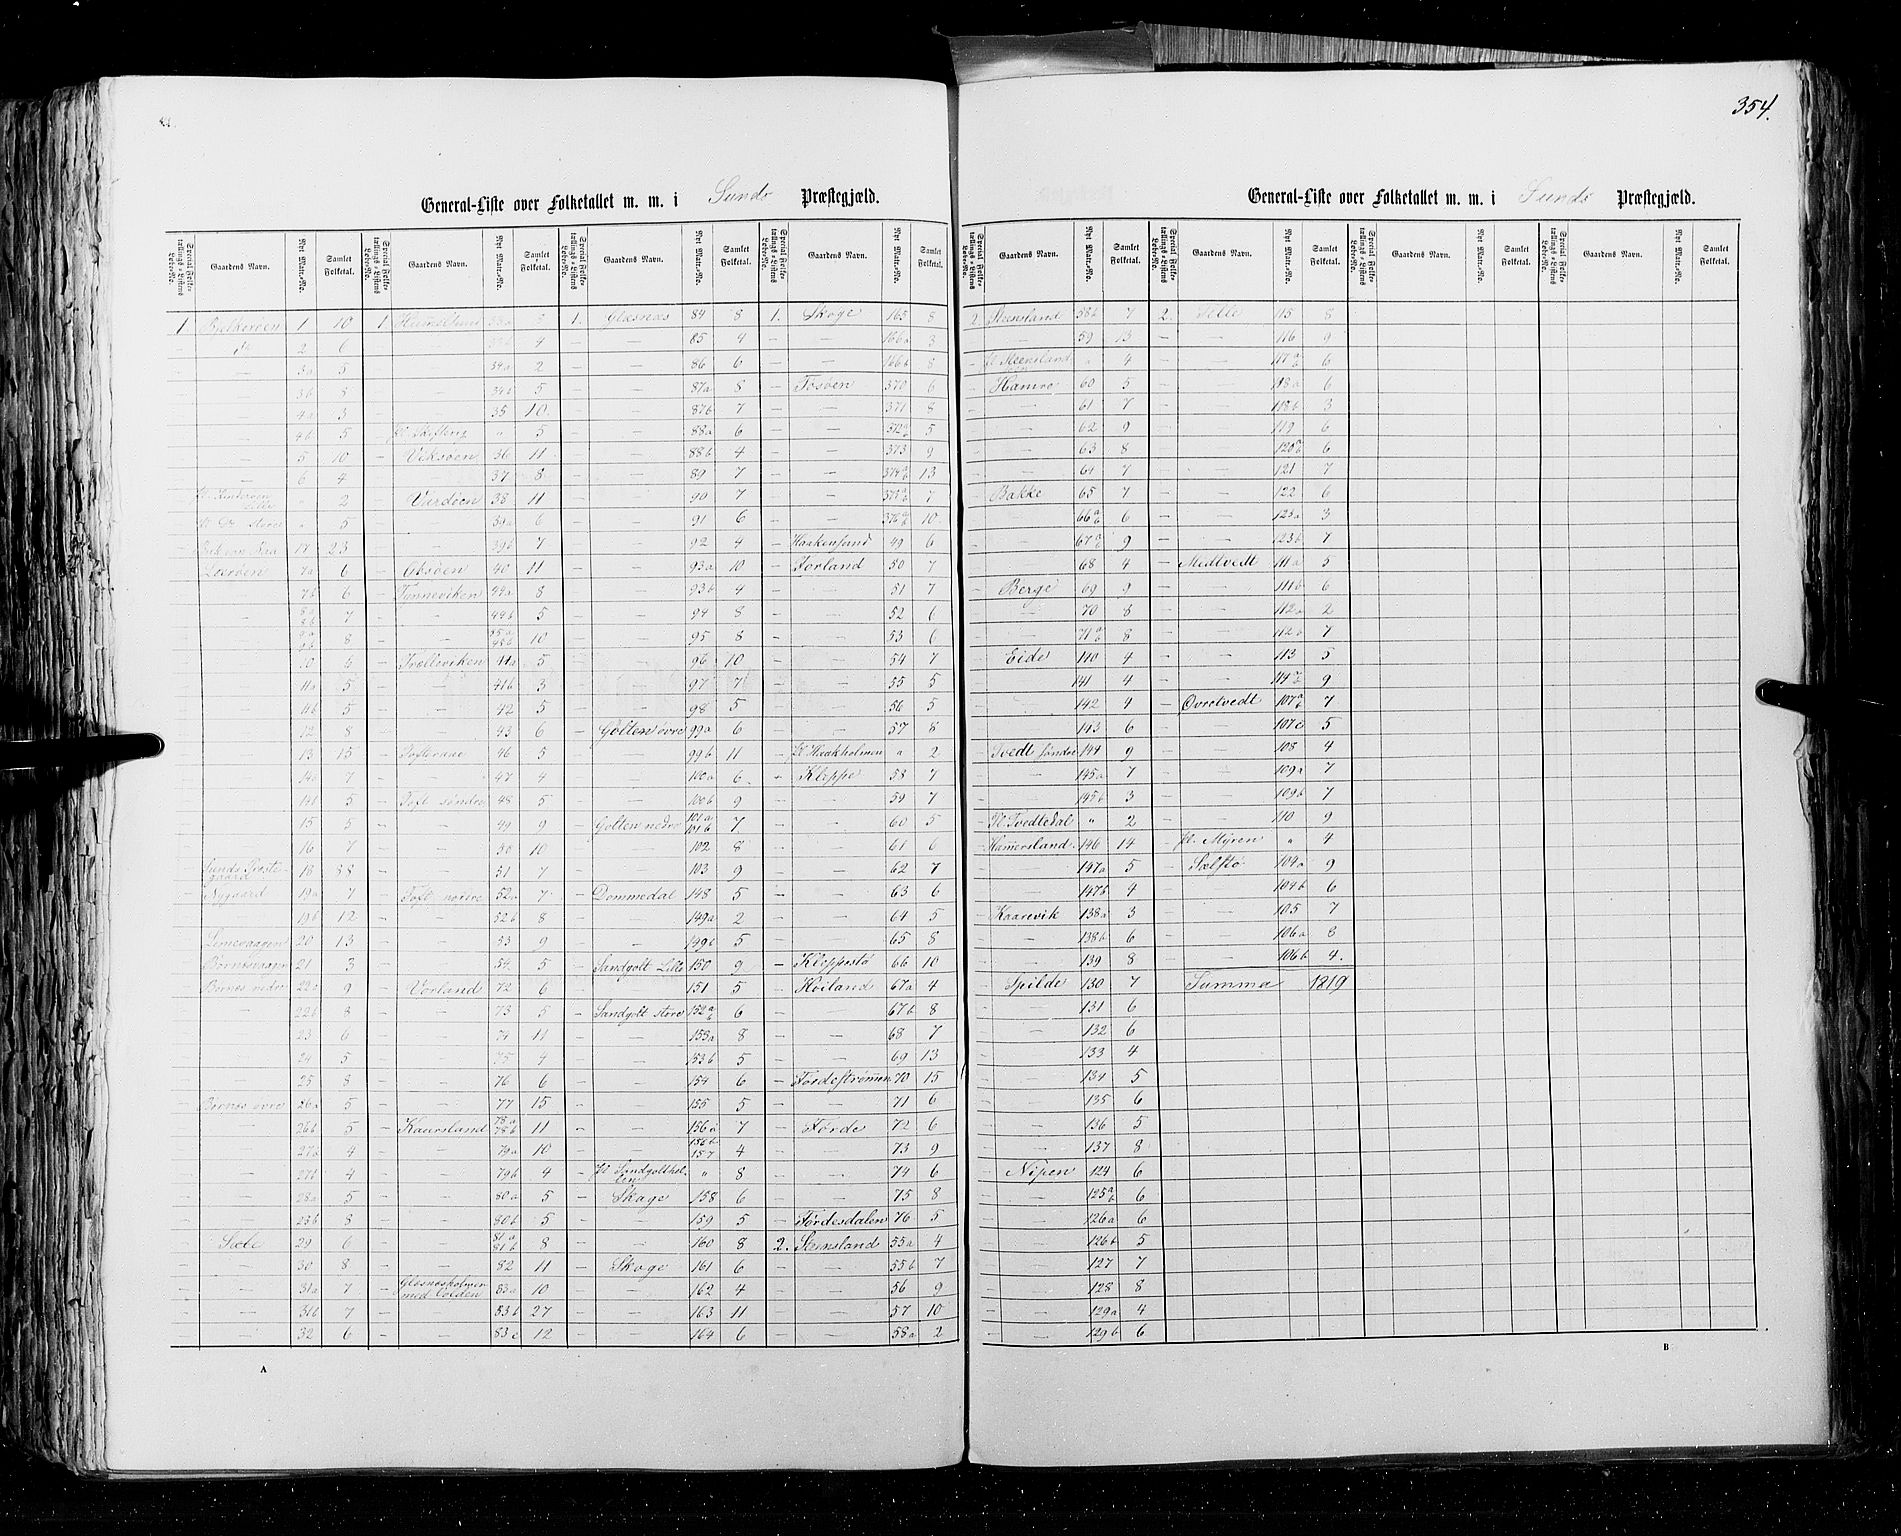 354.
General-Liste over Folketallet m. m. i Sunds Præstegjæld.
Special Folketællings-Listens Løbe-No. Gaardens Navn. Nyt Matr.-No. Samlet Folketal. Special Folketællings-Listens Løbe-No. Gaardens Navn. Nyt Matr.-No. Samlet Folketal. Special Folketællings-Listens Løbe-No. Gaardens Navn. Nyt Matr.-No. Samlet Folketal. Special Folketællings-Listens Løbe-No. Gaardens Navn. Nyt Matr.-No. Samlet Folketal.
1 Bjelkerøen 1 10 1 3 1. Glæsnæs 84 8 1. Skoge 165 8
2 6 4 — — 85 4 — — 166a 3
3a 5 34a 2 — — 86 6 — — 166b 8
3b 5 34b 5 — — 87a 8 — Tösöen 370 6
4a 3 35 10 — — 87b 7 — — 371 8
4b 5 " 5 — — 88a 6 — — 5
5 10 — Viksøen 36 11 — — 88b 4 — — 373 9
6 4 — — 37 8 — — 89 7 — — 13
" 2 — 38 11 — — 90 7 — — 7
" 5 — — 39a 6 — — 91 6 — — 10
17 23 — — 39b 7 — — 92 4 — Haakensund 49 6
Lerøen 7a 6 — 40 11 — — 93a 10 — Forland 50 7
7b 6 8 — — 93b 4 — — 51 7
8a 8b 7 5 — — 94 8 — — 52 6
9a 9b 8 10 — — 95 8 — — 53 6
6 — Trælleviken 41a 5 — — 96 10 — — 54 7
11a 5 — — 41b 3 — — 97 7 — — 55 5
11b 5 — — 42 5 — — 98 5 — — 56 5
12 8 — — 43 6 — Golten øvre 99a 6 — — 57 8
13 15 — 46 5 — — 99b 11 — " 2
14a 7 — — 47 4 — — 100a 6 — Kleppe 58 7
14b 5 — Toft søndre 48 5 — — 100b 9 — — 59 7
15 5 — — 49 9 — Golten nedre 101a 101b 7 — — 60 5
16 7 — — 50 10 — — 102 8 — — 61 6
Sunds Prestegaard 18 38 — — 51 7 — — 103 9 — — 62 7
Nygaard 19a 7 — Toft nordre 52a 7 — Dommedal 148 5 — — 63 6
19b 12 — — 52b 8 — — 149a 2 — — 64 5
20 13 — — 53 9 — — 149b 5 — — 65 8
21 3 — — 54 5 — Sandgolt Lille 150 9 — Kleppestø 66 10
Børnes nedre 22a 9 — Vorland 72 6 — — 151 5 — Høiland 67a 4
22b 8 — — 73 5 — Sandgolt store 152a/b 6 — — 67b 8
23 6 — — 74 11 — — 153a 8 — — 68 7
24 5 — — 75 4 — — 153b 5 — — 69 13
25 8 — — 76 6 — — 154 6 — Fördeströmmen 70 15
Børnes øvre 26a 5 — — 77 15 — — 155 5 — — 71 6
26b 5 — Kaursland 78a 78b 11 — — 156a 7 — Førde 72 6
27a 4 — — 79a 10 — — 156b 157 4 — — 73 9
27b 4 — — 79b 4 — Pl. Sandgoltholmen " 8 — — 74 6
28a 5 — — 80a 5 — Skoge 158 6 — — 75 8
28b 8 — — 80b 5 — — 159 5 — Førdesdalen 76 5
— Sæle 29 6 — — 81a 81b 8 — — 160 8 2. Steensland 55a 4
— — 30 8 — — 82 11 — Skoge 161 6 — — 55b 7
— — 31a 7 — Glæsnæsholmen med 83a 10 — — 162 4 — — 56 9
— — 31b 7 — — 83b 27 — — 163 11 — — 57 10
— — 32 6 — — 83c 12 — — 164 6 — — 58a 2
A
General-Liste over Folketallet m. m. i Sunds Præstegjæld.
Special Folketællings-Listens Løbe-No. Gaardens Navn. Nyt Matr.-No. Samlet Folketal. Special Folketællings-Listens Løbe-No. Gaardens Navn. Nyt Matr.-No. Samlet Folketal. Special Folketællings-Listens Løbe-No. Gaardens Navn. Nyt Matr.-No. Samlet Folketal. Special Folketællings-Listens Løbe-No. Gaardens Navn. Nyt Matr.-No. Samlet Folketal.
2. Steensland 58b 7 2. Telle 115 8
— — 59 13 — — 116 9
— Pl. Steensland " 4 — — 117a/b 6
— Hamre 60 5 — — 118a 6
— — 61 7 — — 118b 3
— — 62 9 — — 119 6
— — 63 8 — — 120a/b 6
— — 64 7 — — 121 7
— Bakke 65 7 — — 122 6
— — 66a/b 6 — — 123a 3
— — 67a/b 9 — — 123b 7
— — 68 4 — Medtvedt 111a 5
— Berge 69 9 — — 111b 6
— — 70 8 — — 112a 2
— — 71a/b 8 — — 112b 7
— Eide 140 4 — — 113 5
— — 141 4 — — 114a/b 9
— — 142 4 — Øvretvedt 107a/b 7
— — 143 6 — — 107c 5
— Tvedt søndre 144 9 — — 108 4
— — 145a 7 — — 109a 7
— — 145b 3 — — 109b 7
— Pl. Tvedtedal " 2 — — 110 9
— Hamersland 146 14 — Pl. Myren " 4
— — 147a 5 — Selstø 104a 9
— — 147b 4 — — 104b 6
— Kaarevik 138a 3 — — 105 7
— — 138b 6 — — 106a 8
— — 139 8 — — 106b 4.
— Spilde 130 7 Summa 1819
— — 131 6
— — 132 6
— — 133 4
— — 134 5
— — 135 6
— — 136 5
— — 137 8
— Nipen 124 6
— — 125a/b 6
— — 126a 6
— — 126b 5
— — 127 7
— — 128 8
— — 129a 4
— — 129b 6
B